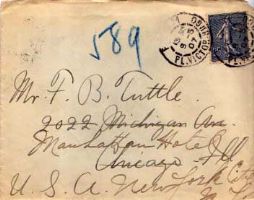 589
PL. VICTOR
Mr. F. B. Tuttle.
2022 Michigan Ave.
Manhattan Hotel
Chicago Ill
U. S. A. New York City